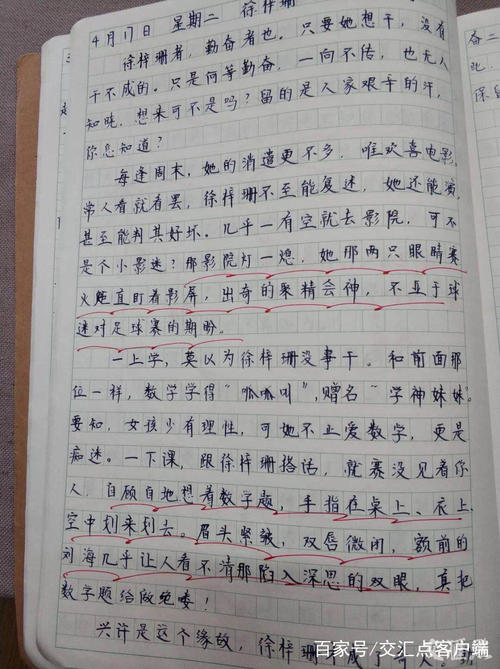 4月17日 星期二 徐梓珊
徐梓珊者，勤奋者也。只要她想干，没有
干不成的。只是何等勤奋，一向不传，也无人
知晓。想来可不是吗？留的是人家艰辛的汗，
你怎知道？
每逢周末，她的消遣更不多，唯欢喜电影，
常人看就看罢，徐梓珊不至能复述，她还能演，
甚至能判其好坏。几乎一有空就去影院，可不
是个小影迷？那影院灯一熄，她那两只眼睛赛
火炬直盯着影屏，出奇的聚精会神，不亚于球
迷对足球赛的期盼。
一上学，莫以为徐梓珊没事干。和前面那
位一样，数学学得“呱呱叫”，赠名“学神妹妹”。
要知，女孩少有理性，可她不止爱数学，更是
痴迷。一下课，跟徐梓珊搭话，就赛没见着你
人，自顾自地想着数学题，手指在桌上、衣上、
空中划来划去。眉头紧皱，双唇微闭，额前的
刘海几乎让人看不清那陷入深思的双眼，真把
数学题给做绝喽！
兴许是这个缘故，徐梓珊不成了
百家号/交汇点客户端
奋二
晚
保留